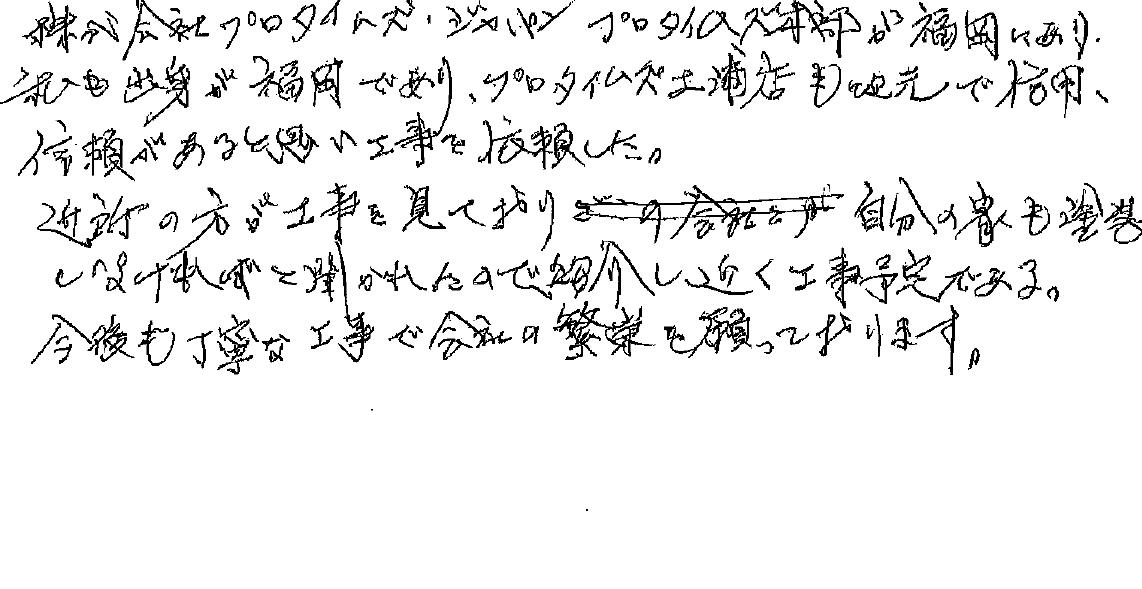 株式会社プロタイムズ・ジャパン プロタイムズ本部が福岡にあり、
私も出身が福岡であり、プロタイムズ土浦店も地元で信用、
信頼があると思い工事を依頼した。
近所の方が工事を見ており 自分の家も塗装
しなければと聞かれたので紹介し近く工事予定である。
今後も丁寧な工事で会社の繁栄を願っております。